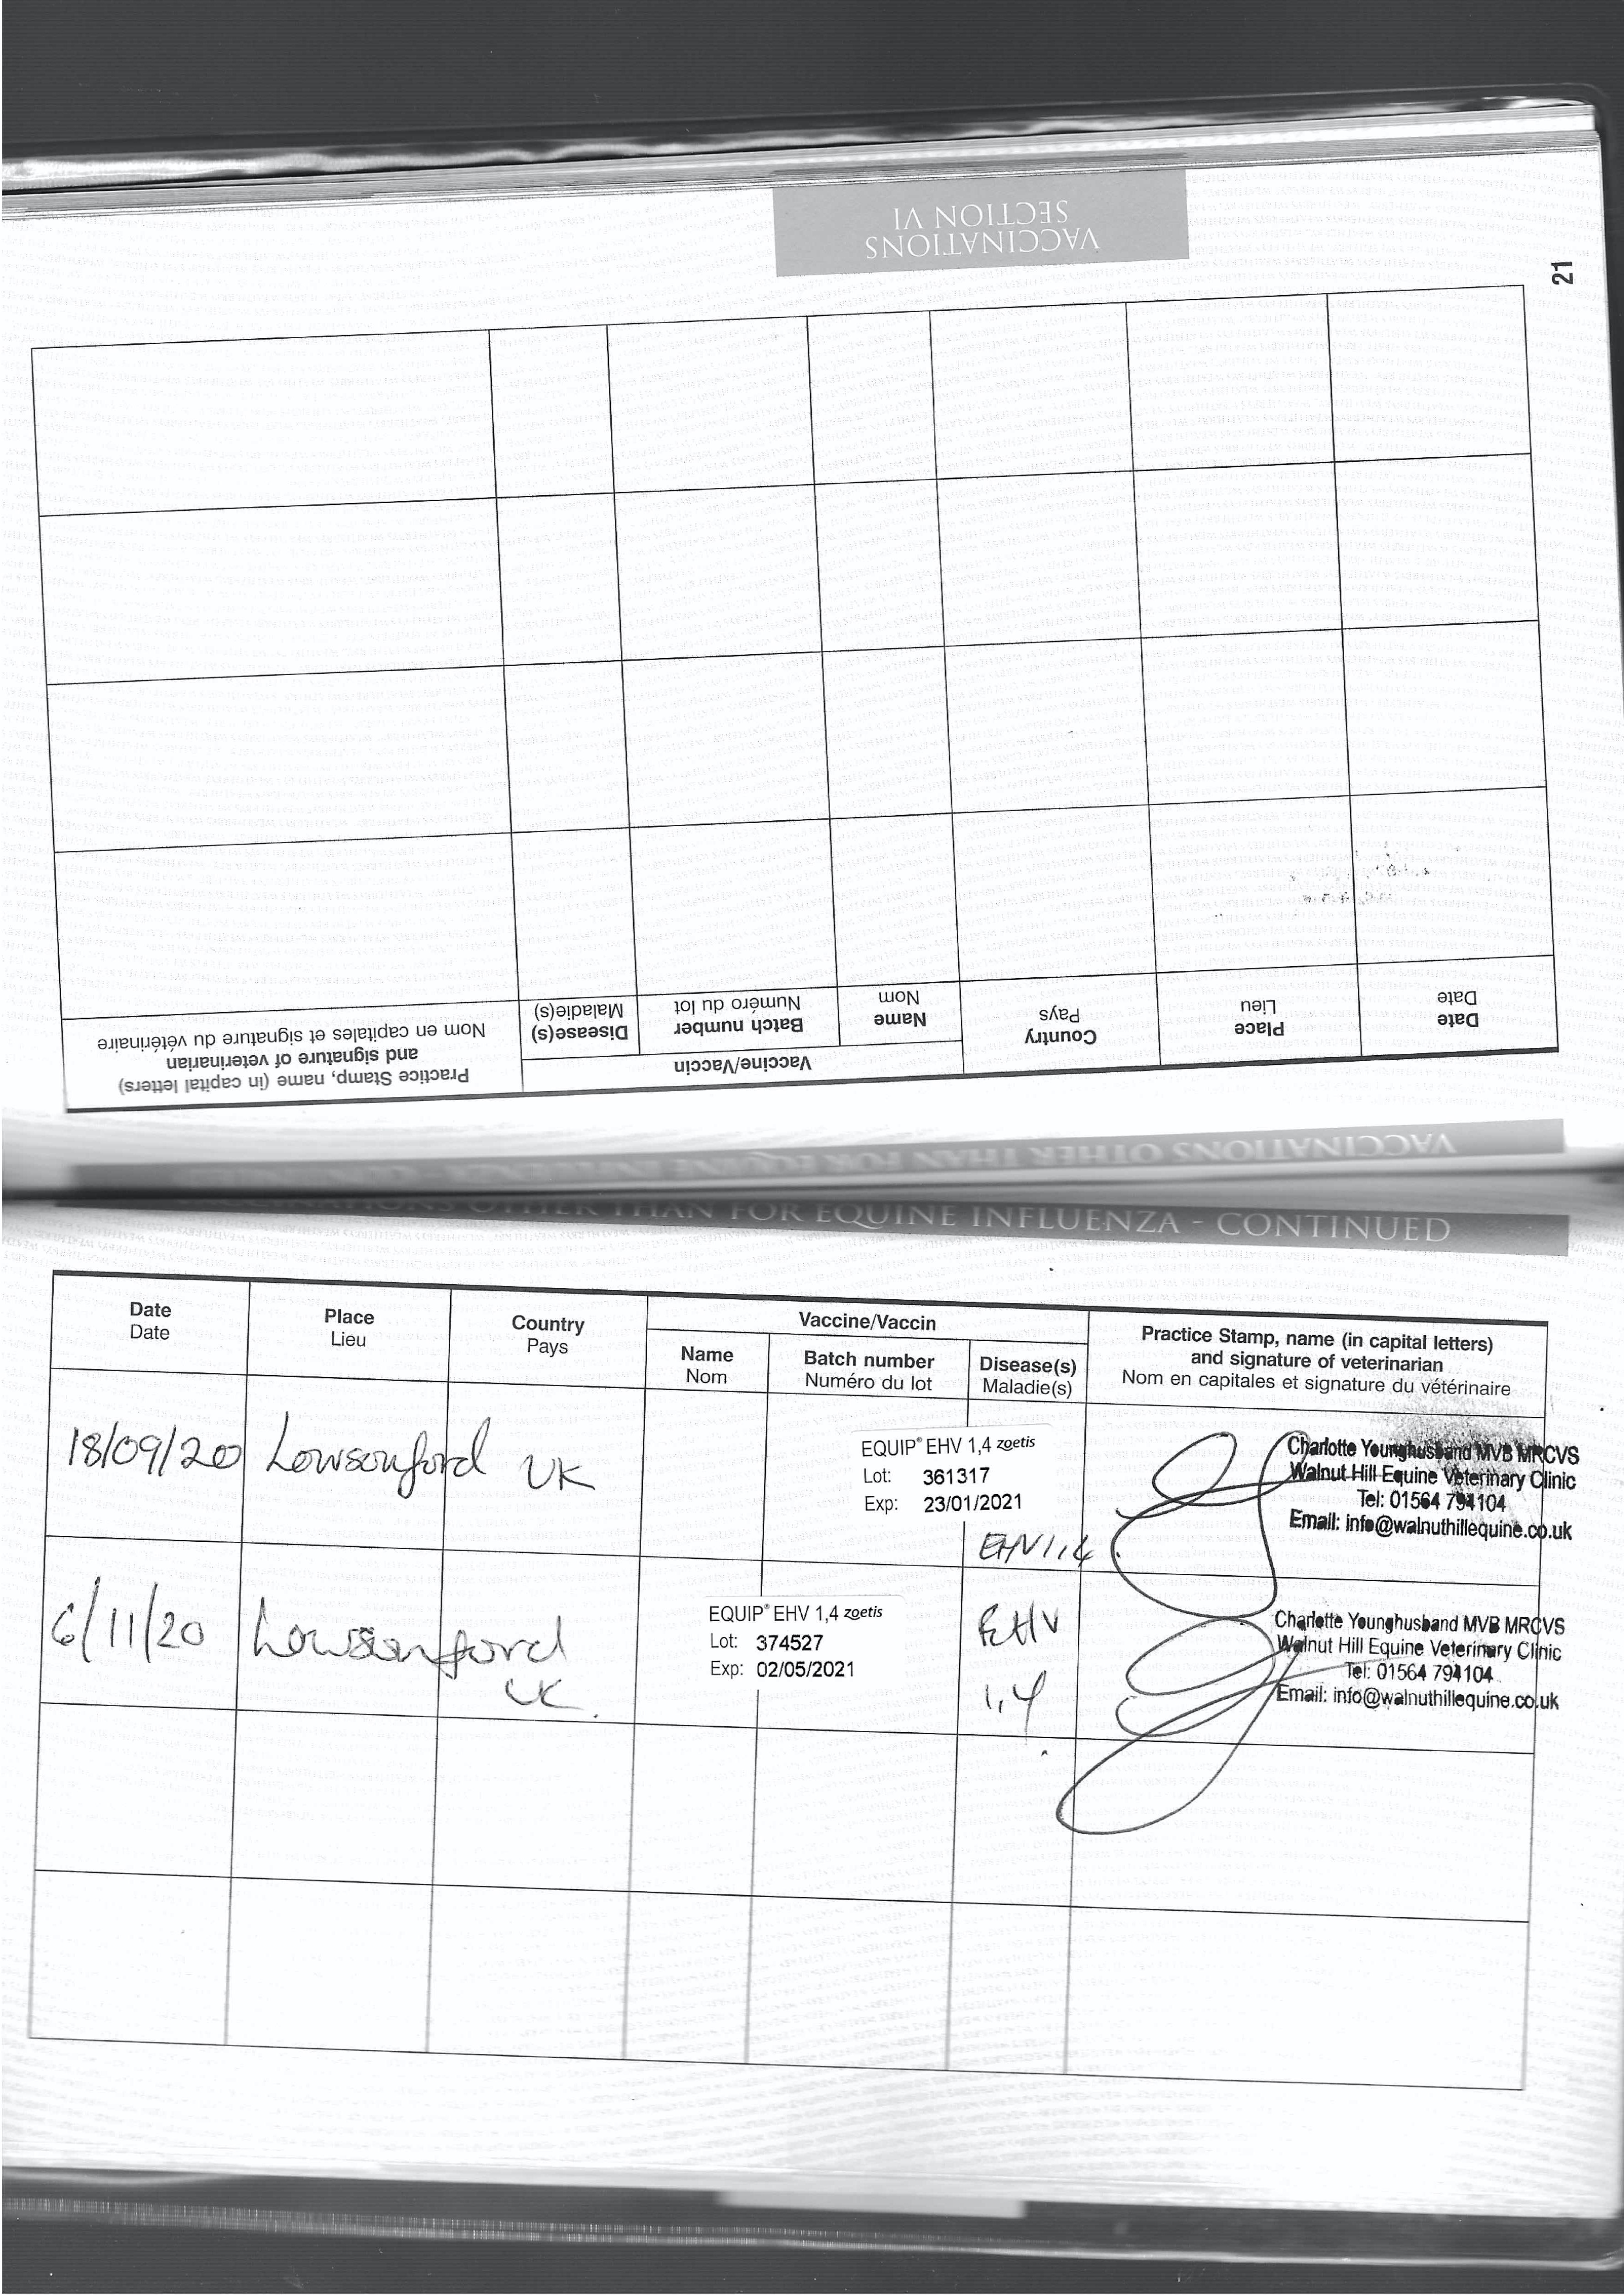 VACCINATIONS
SECTION VI
21
VACCINATIONS OTHER THAN FOR EQUINE INFLUENZA - CONTINUED
Date Place Country Vaccine/Vaccin Practice Stamp, name (in capital letters)
Date Lieu Pays Name Batch number Disease(s) and signature of veterinarian
Nom Numéro du lot Maladie(s) Nom en capitales et signature du vétérinaire
VACCINATIONS OTHER THAN FOR EQUINE INFLUENZA - CONTINUED
Date Place Country Vaccine/Vaccin Practice Stamp, name (in capital letters)
Date Lieu Pays Name Batch number Disease(s) and signature of veterinarian
Nom Numéro du lot Maladie(s) Nom en capitales et signature du vétérinaire
18/09/20 Lowsonford UK
EQUIP® EHV 1,4 zoetis
Lot: 361317
Exp: 23/01/2021
EHV1,4
Charlotte Younghusband MVB MRCVS
Walnut Hill Equine Veterinary Clinic
Tel: 01564 794104
Email: info@walnuthillequine.co.uk
6/11/20 Lowsonford
UK.
EQUIP® EHV 1,4 zoetis
Lot: 374527
Exp: 02/05/2021
EHV
1,4
Charlotte Younghusband MVB MRCVS
Walnut Hill Equine Veterinary Clinic
Tel: 01564 794104
Email: info@walnuthillequine.co.uk